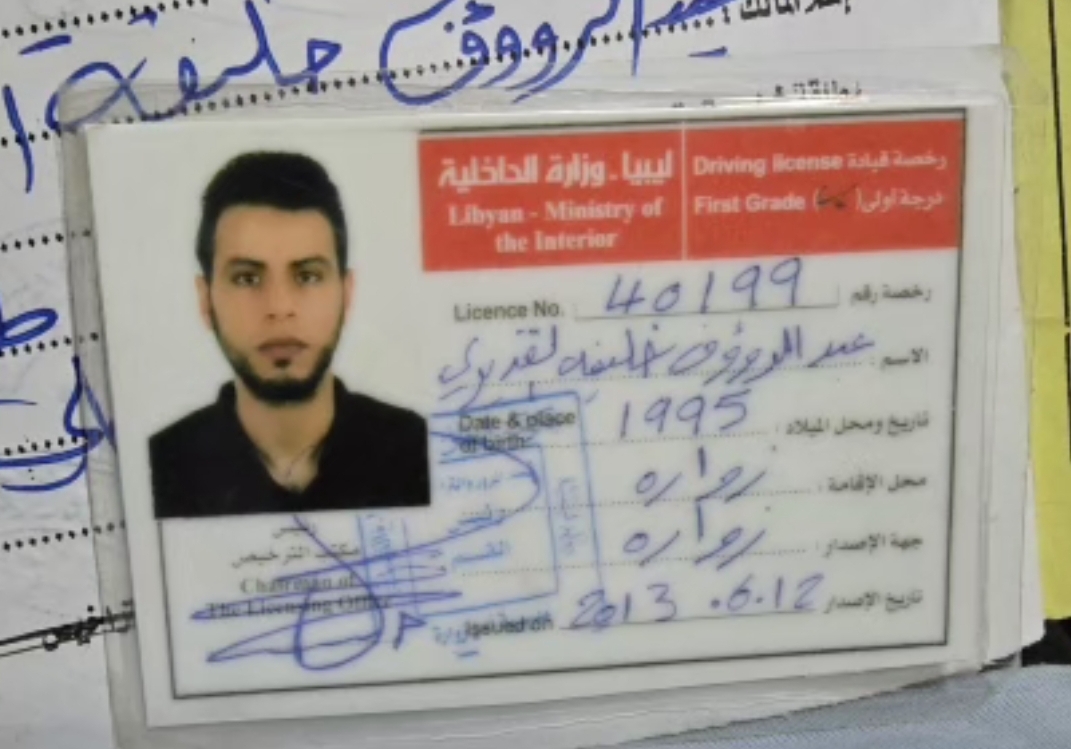 عبد الرووف خليفة
ليبيا - وزارة الداخلية
Libyan - Ministry of
the Interior
رخصة قيادة Driving license
درجة أولى ( ) First Grade
رخصة رقم 40199 Licence No.
الاسم : عبد الرووف خليفه لقديري
تاريخ ومحل الميلاد : 1995 Date & place
of birth:
محل الإقامة : زواره
جهة الإصدار : زواره
تاريخ الإصدار 2013.6.12 Issued on
مكتب الترخيص
Chairman of
The Licensing Office